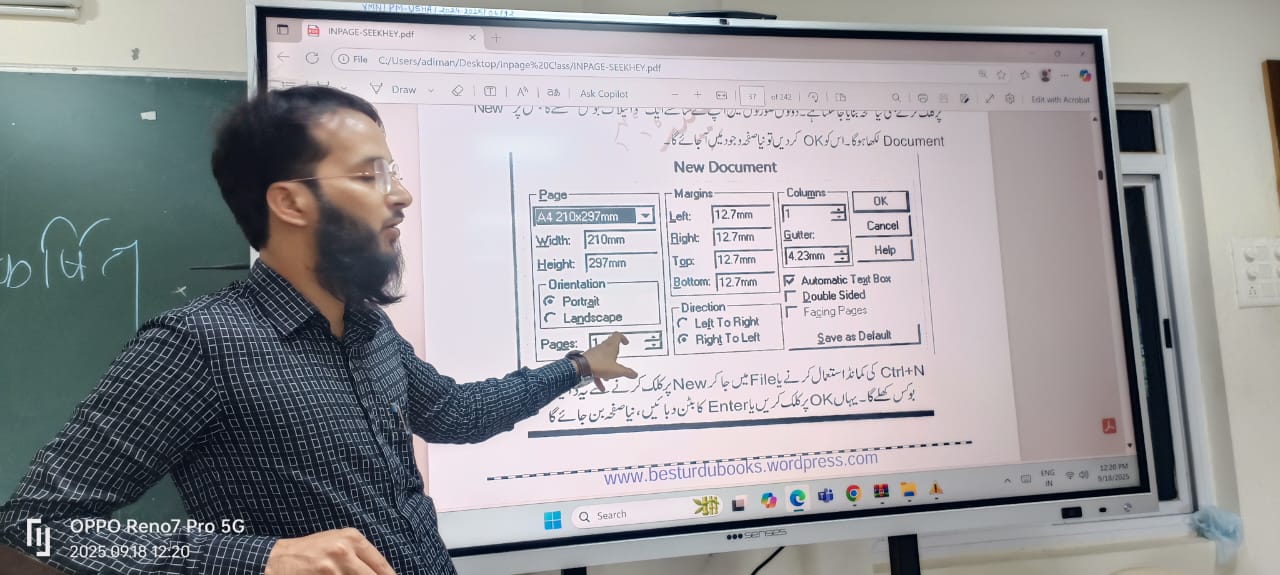 VMNTPM-USHA/2024-2025/
INPAGE-SEEKHEY.pdf
File C:/Users/adiman/Desktop/Inpage%20Class/INPAGE-SEEKHEY.pdf
Draw
Ask Copilot
37 of 242
Edit with Acrobat
New
Document لکھا ہوگا۔ اس کو OK کردیں تو نیا صفحہ وجود میں آجائے گا۔
New Document
Page
A4 210x297mm
Width: 210mm
Height: 297mm
Orientation
Portrait
Landscape
Pages: 1
Margins
Left: 12.7mm
Right: 12.7mm
Top: 12.7mm
Bottom: 12.7mm
Direction
Left To Right
Right To Left
Columns
1
Gutter:
4.23mm
OK
Cancel
Help
Automatic Text Box
Double Sided
Facing Pages
Save as Default
Ctrl+N کی کمانڈ استعمال کرنے یا File میں جا کر New پر کلک کرنے سے یہ
بوکس کھلے گا۔ یہاں OK پر کلک کریں یا Enter کا بٹن دبائیں، نیا صفحہ بن جائے گا
www.besturdubooks.wordpress.com
Search
ENG
IN
12:20 PM
9/18/2025
senses
OPPO Reno7 Pro 5G
2025.09.18 12:20